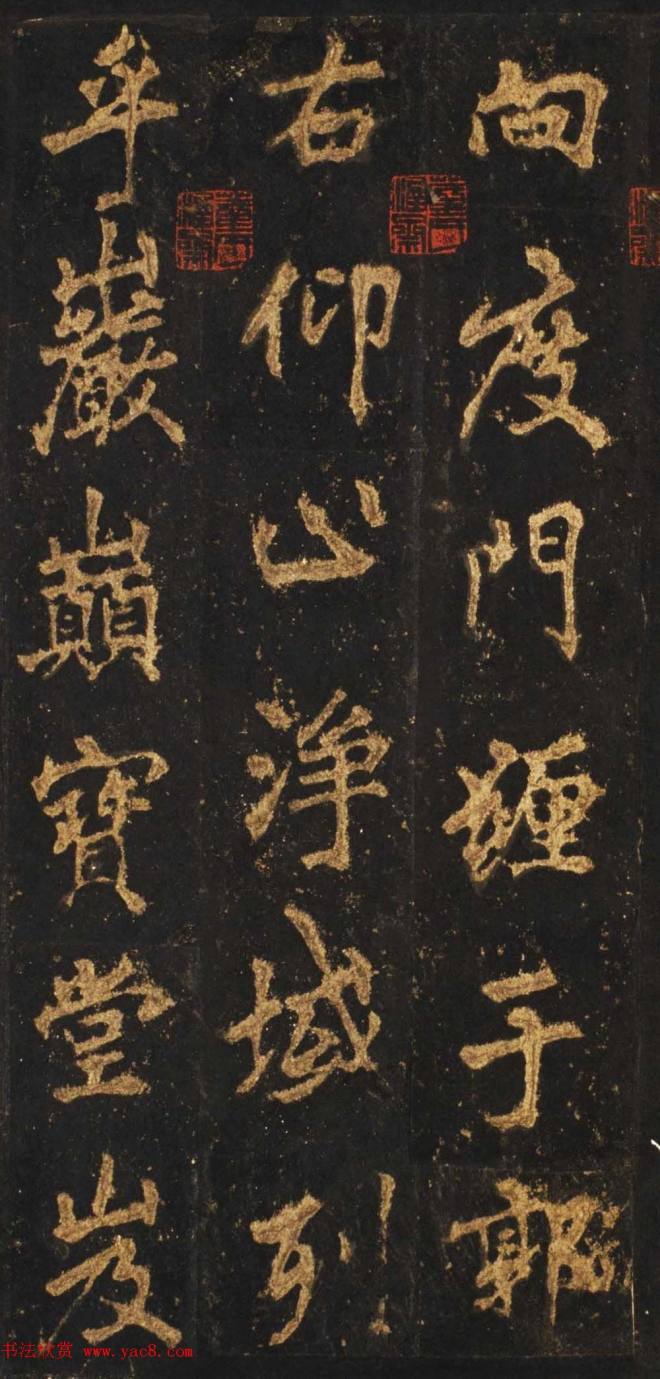 向度門纏于郭
右仰止淨域列
乎巖巔寶堂岌
书法欣赏 www.yac8.com